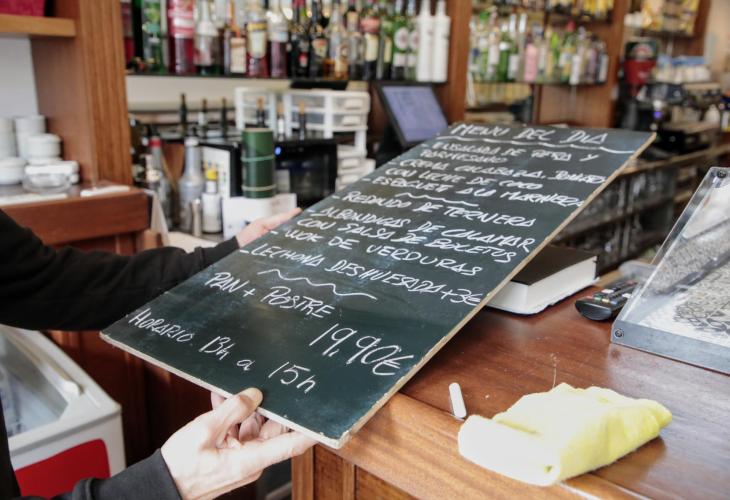 MENU DEL DIA
ENSALADA DE PERA Y
PARMESANO
CREMA CALABAZA
CON LECHE DE COCO
ESPAGUET A LA MARINERA
REDONDO DE TERNERA
ALBONDIGAS DE CALAMAR
CON SALSA DE BOLETUS
WOK DE VERDURAS
LECHONA DESHUESADA +3€
PAN + POSTRE
19,90€
HORARIO 13h a 15h